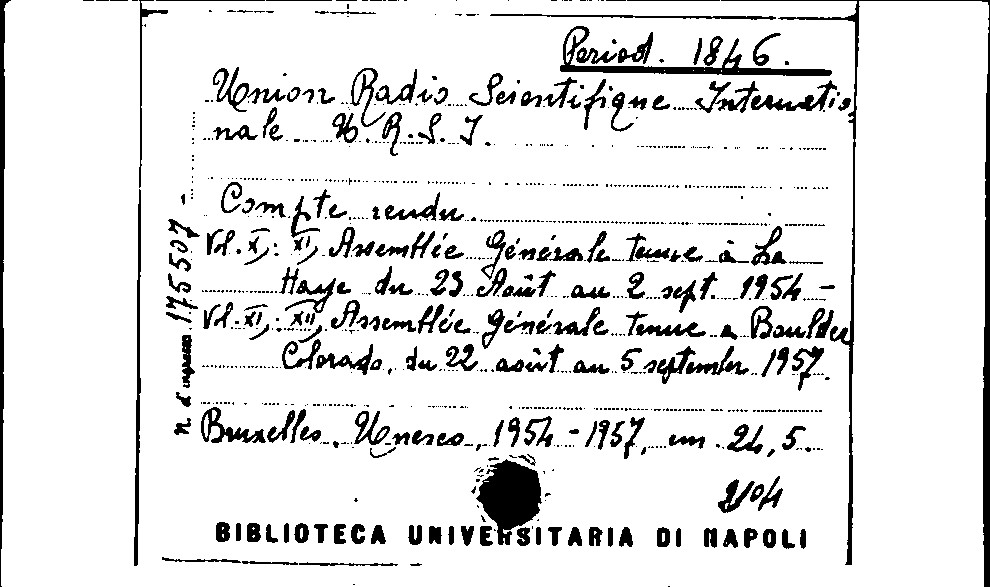 Period. 1846.
Union Radio Scientifique Internatio-
nale U.R.S.I.
Compte rendu.
Vol. X,: XI, Assemblée Générale tenue à La
Haye du 23 Août au 2 sept. 1954 -
Vol. XI,: XII, Assemblée Générale tenue a Boulder
Colorado, du 22 août au 5 septembre 1957.
Bruxelles, Unesco, 1954-1957, cm. 24,5.
n. d'ingresso 175507 -
BIBLIOTECA UNIVERSITARIA DI NAPOLI